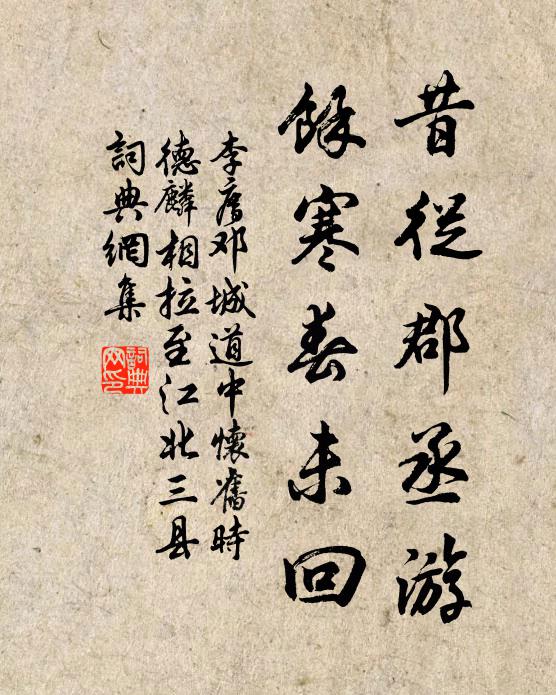 昔從郡丞游
餘寒春未回
李廌邓城道中懷舊時
德麟相拉至江北三县
詞典網集
詞典網印